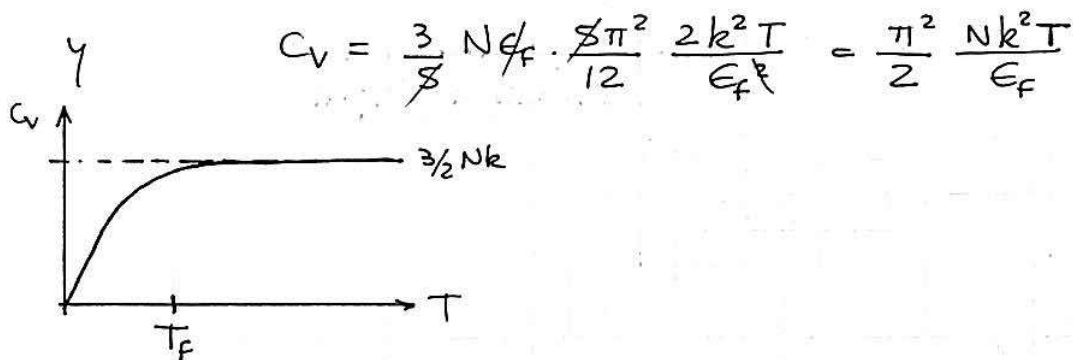 y
C_V = 3/5 N ϵ_f · 5π²/12 2k²T/ϵ_f² = π²/2 Nk²T/ϵ_F
C_V
3/2 Nk
T
T_F